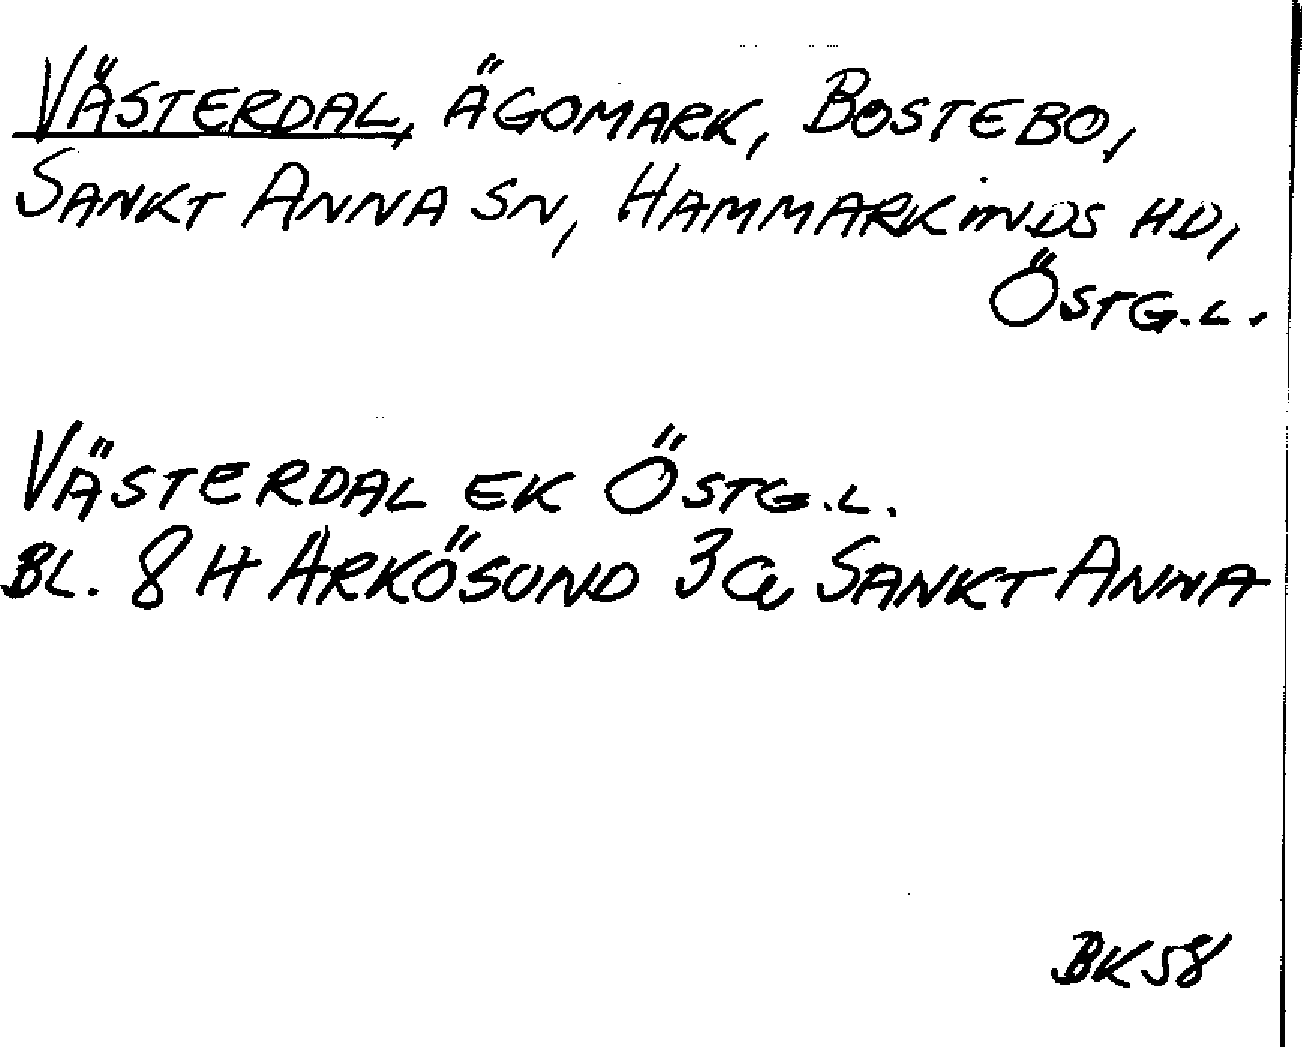 VÄSTERDAL, ÄGOMARK, BOSTEBO,
SANKT ANNA SN, HAMMARKINDS HD,
ÖSTG.L.
VÄSTERDAL EK ÖSTG.L.
BL. 8 H ARKÖSUND 3 a SANKT ANNA
BK58